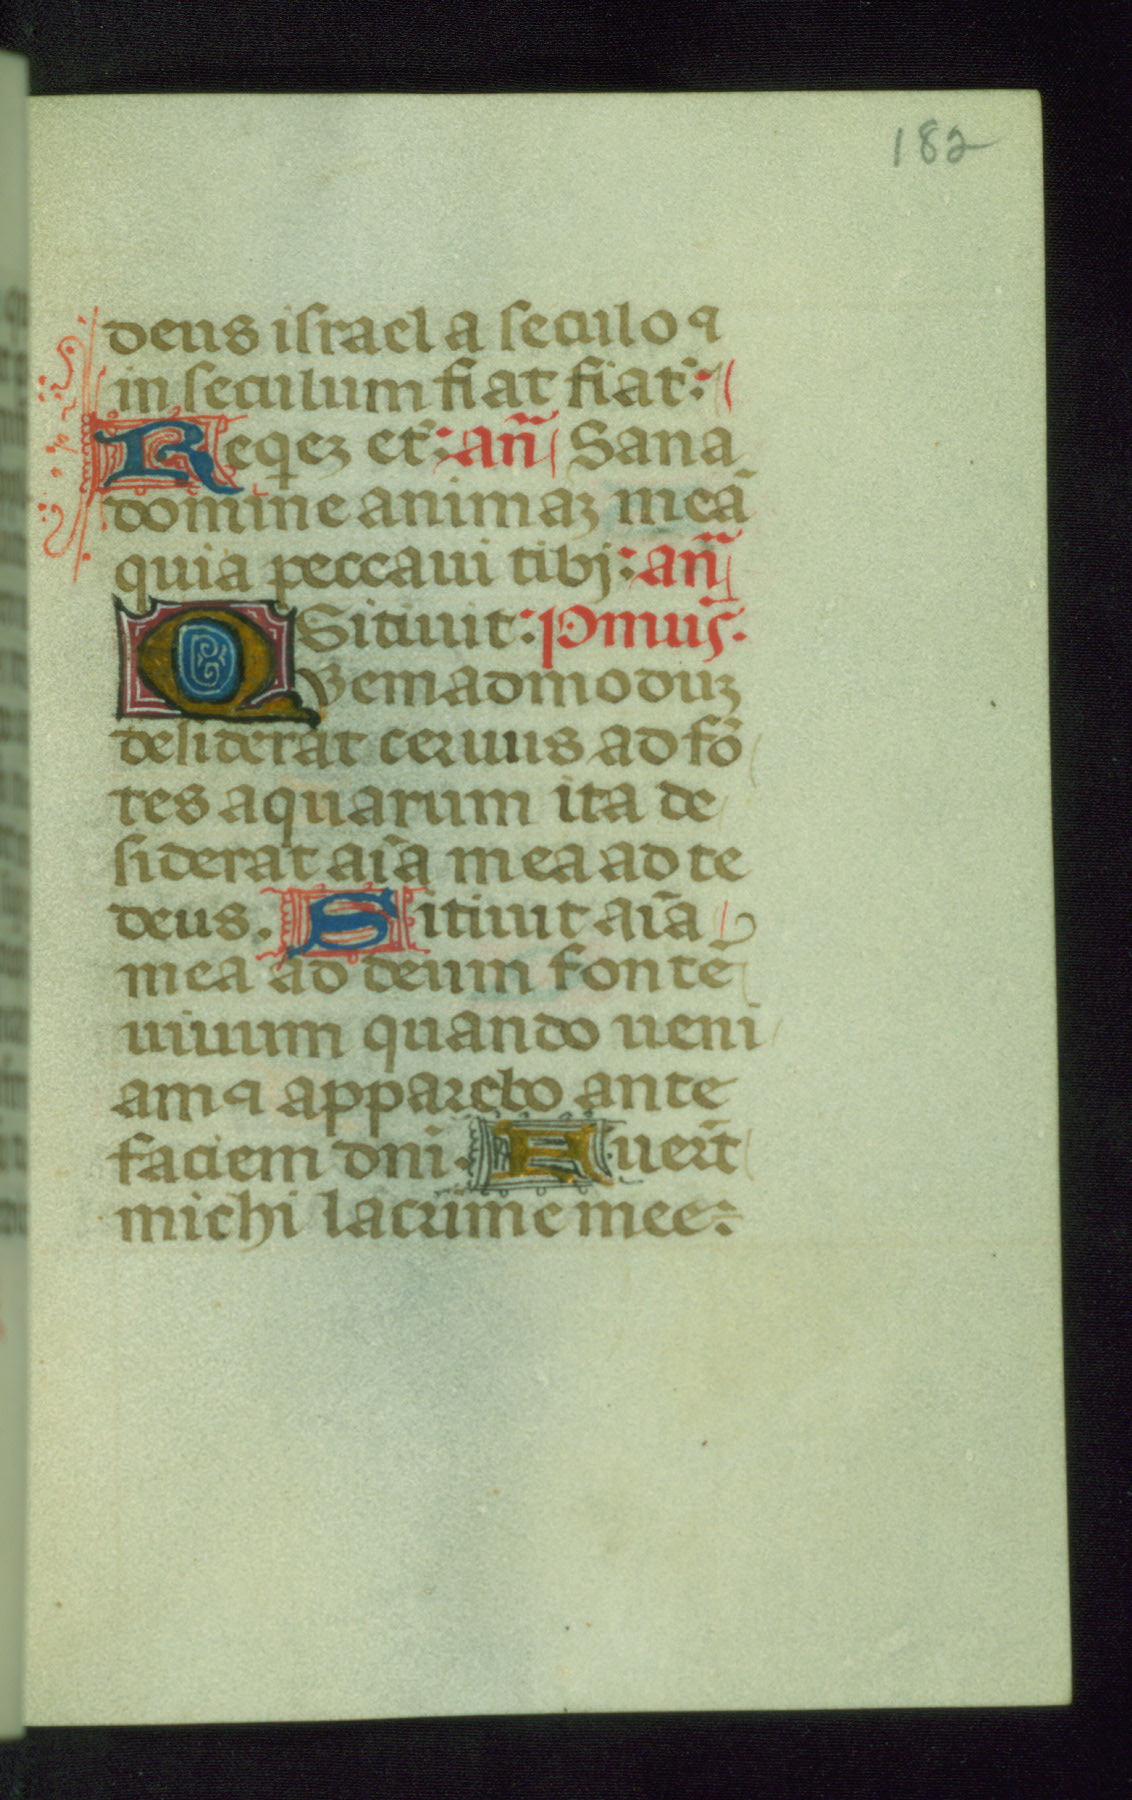 182
deus israel a seculo ⁊
in seculum fiat fiat:
Reqez et: añ Sana
domine animaz meā
quia peccaui tibj: añ
Sitiuit: Pmus.
Quemadmoduz
desiderat ceruus ad fō
tes aquarum ita de
siderat aīa mea ad te
deus. Sitiuit aīa
mea ad deum fontē
uiuum quando ueni
am ⁊ apparebo ante
faciem dni. Fuerūt
michi lacrime mee: